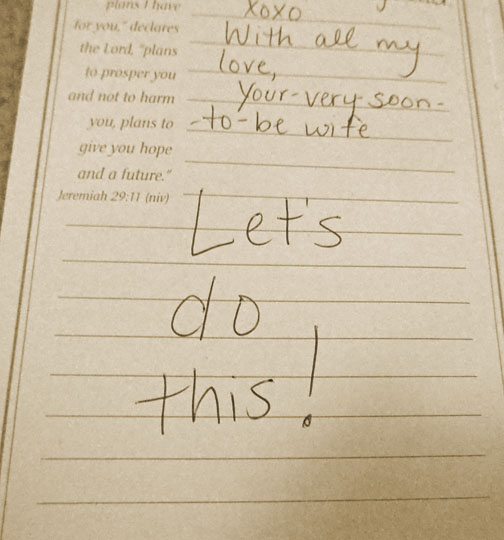 plans I have
for you," declares
the Lord, "plans
to prosper you
and not to harm
you, plans to
give you hope
and a future."
Jeremiah 29:11 (niv)
XOXO
With all my
love,
Your-very-soon-
-to-be wife
Let's
do
this!